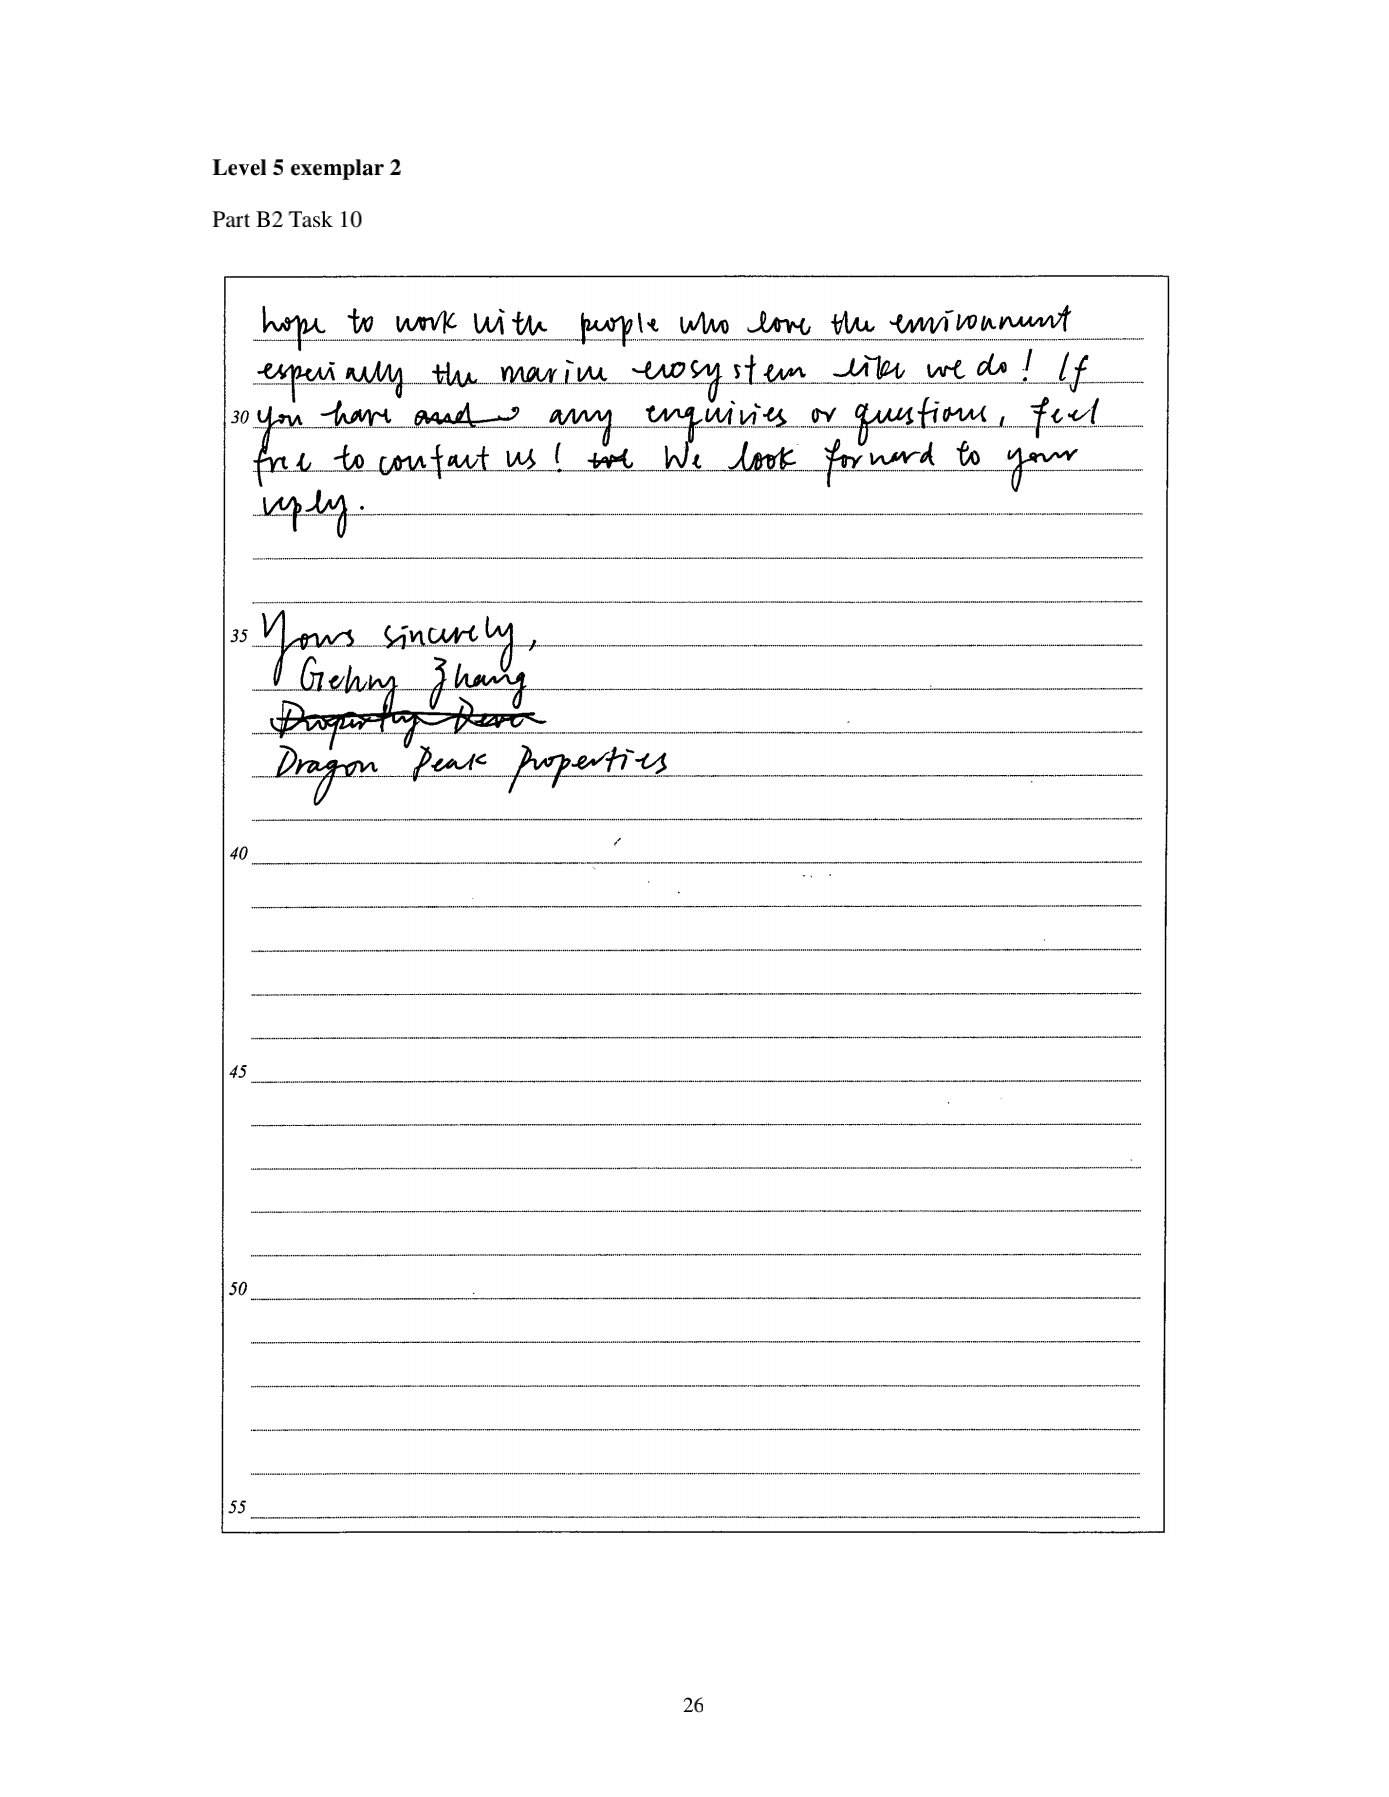 Level 5 exemplar 2
Part B2 Task 10
hope to work with people who love the environment
especially the marine ecosystem like we do! If
30 you have any enquiries or questions, feel
free to contact us! We look forward to your
reply.
35 Yours sincerely,
Gehny Zhang
Dragon Peak Properties
40
45
50
55
26